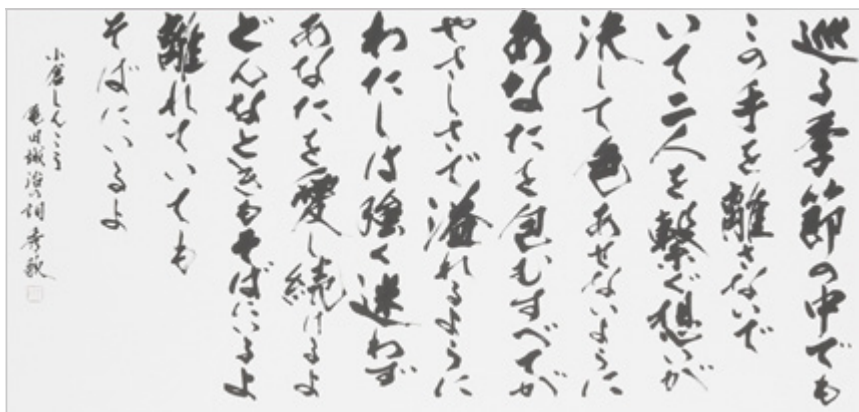 巡る季節の中でも
この手を離さないで
いて二人を繋ぐ想いが
決して色あせないように
あなたを包むすべてが
やさしさで溢れるように
わたしは強く迷わず
あなたを愛し続けるよ
どんなときもそばにいるよ
離れていても
そばにいるよ
小倉しんこう
亀田誠治の詞 孝敬